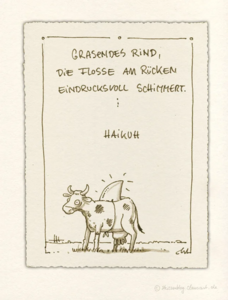 GRASENDES RIND,
DIE FLOSSE AM RÜCKEN
EINDRUCKSVOLL SCHIMMERT.
HAIKUH